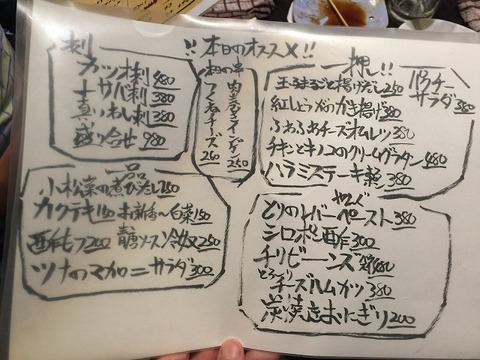 !!本日のオススメ!!
刺
カツオ刺 480
サバ刺 380
真いわし刺 380
盛り合せ 980
本日の串
肉巻き 250
チーズ 250
一押し!!
玉ねぎまるごと揚げだし 250
紅しょうがのかき揚げ 380
ふわふわチーズオムレツ 380
チキンとキノコのクリームグラタン 480
ハラミステーキ 380
パクチーサラダ 380
一品
小松菜の煮びたし 250
カクテキ 150 お新香〜白菜 150
酢もつ 200 青唐ソース冷奴 250
ツナのマカロニサラダ 300
とりのレバーペースト 380
シロポン酢 300
チリビーンズ
とろ〜りチーズハムカツ 380
炭焼きおにぎり 200